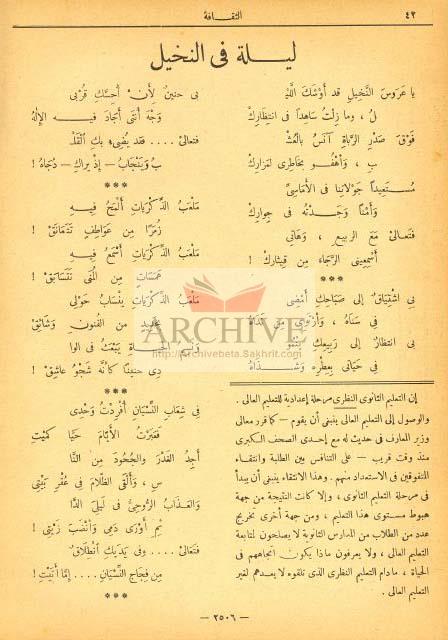 ٤٢
الثقافة
ليلة فى النخيل
يا عَروسَ النَّخيلِ قد أَوْشَكَ اللَّيْ
لُ ، وما زِلْتُ ساهِدًا فى انتظارِكْ
فَوْقَ صَدْرِ الرُّباةِ آنَسُ بالعُشْ
بِ ، وأَهْفُو بِخَاطِرِى لمزارِكْ
مُستَعِيداً جَوْلاتِنا فى الأَماسِىِّ
وَأَمْناً وَجَدْتُهُ فى جِوارِكْ
فتَعالَىْ مَعَ الرَّبيعِ ، وهَاتِى
أَسْمِعِينِى الرَّجَاءَ مِن قِيثارِكْ !
***
بِى اشْتِيَاقٌ إلى صَبَاحِكِ أَمْضِى
فى سَنَاهُ ، وأَرْتَوِى مِن نَدَاهُ
بى انتظارٌ إلى رَبِيعِكِ
فى حَيَاتى بِعِطْرِهِ وَشَذَاهُ
بى حنينٌ لأَنْ أُحِسَّكِ قُرْبى
وَجْهَ أُنثى أَجَادَ فيه الإلٰهُ
فتعالَىْ .... فقد يُضِىءُ بكِ القَلْ
بُ ويَنْجَابُ — إذْ يراكِ — دُجَاهُ !
***
مَلْعَبُ الذِّكْرَيَاتِ أَلْمَحُ فِيهِ
زُمَرًا مِن عَوَاطِفٍ تَتَعَانَقْ !
مَلْعَبُ الذِّكْرَيَاتِ أَسْمَعُ فيهِ
هَمَسَاتٍ مِن المُنَى تَتَسَابَقْ !
مَلْعَبُ الذِّكْرَيَاتِ يَنْسَابُ حَوْلِى
مِن الفُنونِ وَشَائِقْ
يَبْعَثُ فى الوا
دِى حنينًا كأنَّه شَجْوُ عاشِقْ !
***
فى شِعَابِ النِّسْيَانِ أُفْرِدْتُ وَحْدِى
فَعَبَرْتُ الأَيَّامَ حَيًّا كَمَيْتِ
أَجِدُ الغَدْرَ والجُحُودَ مِن النَّا
سِ ، وَأَلْقَى الظَّلامَ فى عُقْرِ بَيْتِى
والعَذَابُ الرُّوحِىُّ فى لَيلِىَ الدَّا
جِرِ أَوْرَى دَمِى وأَنْضَبَ زَيْتِى !
فتعالَىْ .... وفى يَدَيكِ انْطِلاقٌ
مِن فِجَاجِ النِّسْيانِ .... إمَّا أَتَيْتِ !
***
إن التعليم الثانوى النظرى مرحلة إعدادية للتعليم العالى .
والوصول إلى التعليم العالى ينبغى أن يقوم — كما قرر معالى
وزير المعارف فى حديث له مع إحدى الصحف الكبرى
منذ وقت قريب — على التنافس بين الطلبة وانتقاء
المتفوقين فى الاستعداد منهم . وهذا الانتقاء ينبغى أن يبدأ
فى مرحلة التعليم الثانوى ، وإلا كانت النتيجة من جهة
هبوط مستوى هذا التعليم ، ومن جهة أخرى تخريج
عدد من الطلاب من المدارس الثانوية لا يصلحون لمتابعة
التعليم العالى ، ولا يعرفون ماذا يكون اتجاههم فى
الحياة ، مادام التعليم النظرى الذى تلقوه لا يعدهم لغير
التعليم العالى .
— ٢٥٠٦ —
ARCHIVE
http://Archivebeta.Sakhrit.com